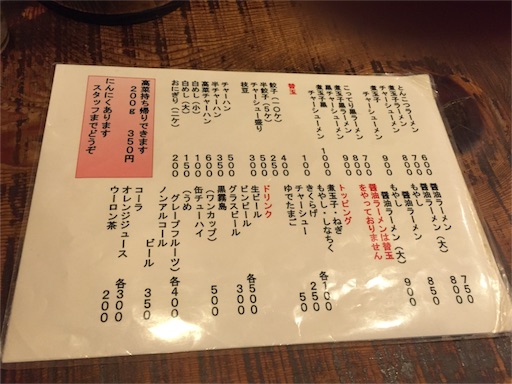 とんこつラーメン　６００
煮玉子ラーメン　７００
チャーシューメン　８００
煮玉子
チャーシューメン　９００
チャーシューメン　１０００
替玉
餃子（一〇ケ）　４００
半餃子（５ケ）　２５０
チャーシュー盛り　５００
枝豆
チャーハン　５００
半チャーハン　３５０
高菜チャーハン　６００
白めし（小）　１００
白めし（大）　１５０
おにぎり（二ケ）　２００
高菜持ち帰りできます
２００ｇ　３５０円
にんにくあります
スタッフまでどうぞ
醤油ラーメン　７５０
醤油ラーメン（大）　８５０
もやし
醤油ラーメン　８００
もやし
醤油ラーメン（大）　９００
醤油ラーメンは替玉
をやっておりません
トッピング
煮玉子・ねぎ
もやし・しなちく　各１００
きくらげ
チャーシュー　２５０
ゆでたまご　５０
ドリンク
生ビール
ビンビール　各５００
グラスビール　３００
黒霧島
（ワンカップ）　５００
缶チューハイ
（うめ
グレープフルーツ）　各４００
ノンアルコール
ビール　３５０
コーラ
オレンジジュース　各３００
ウーロン茶　２００